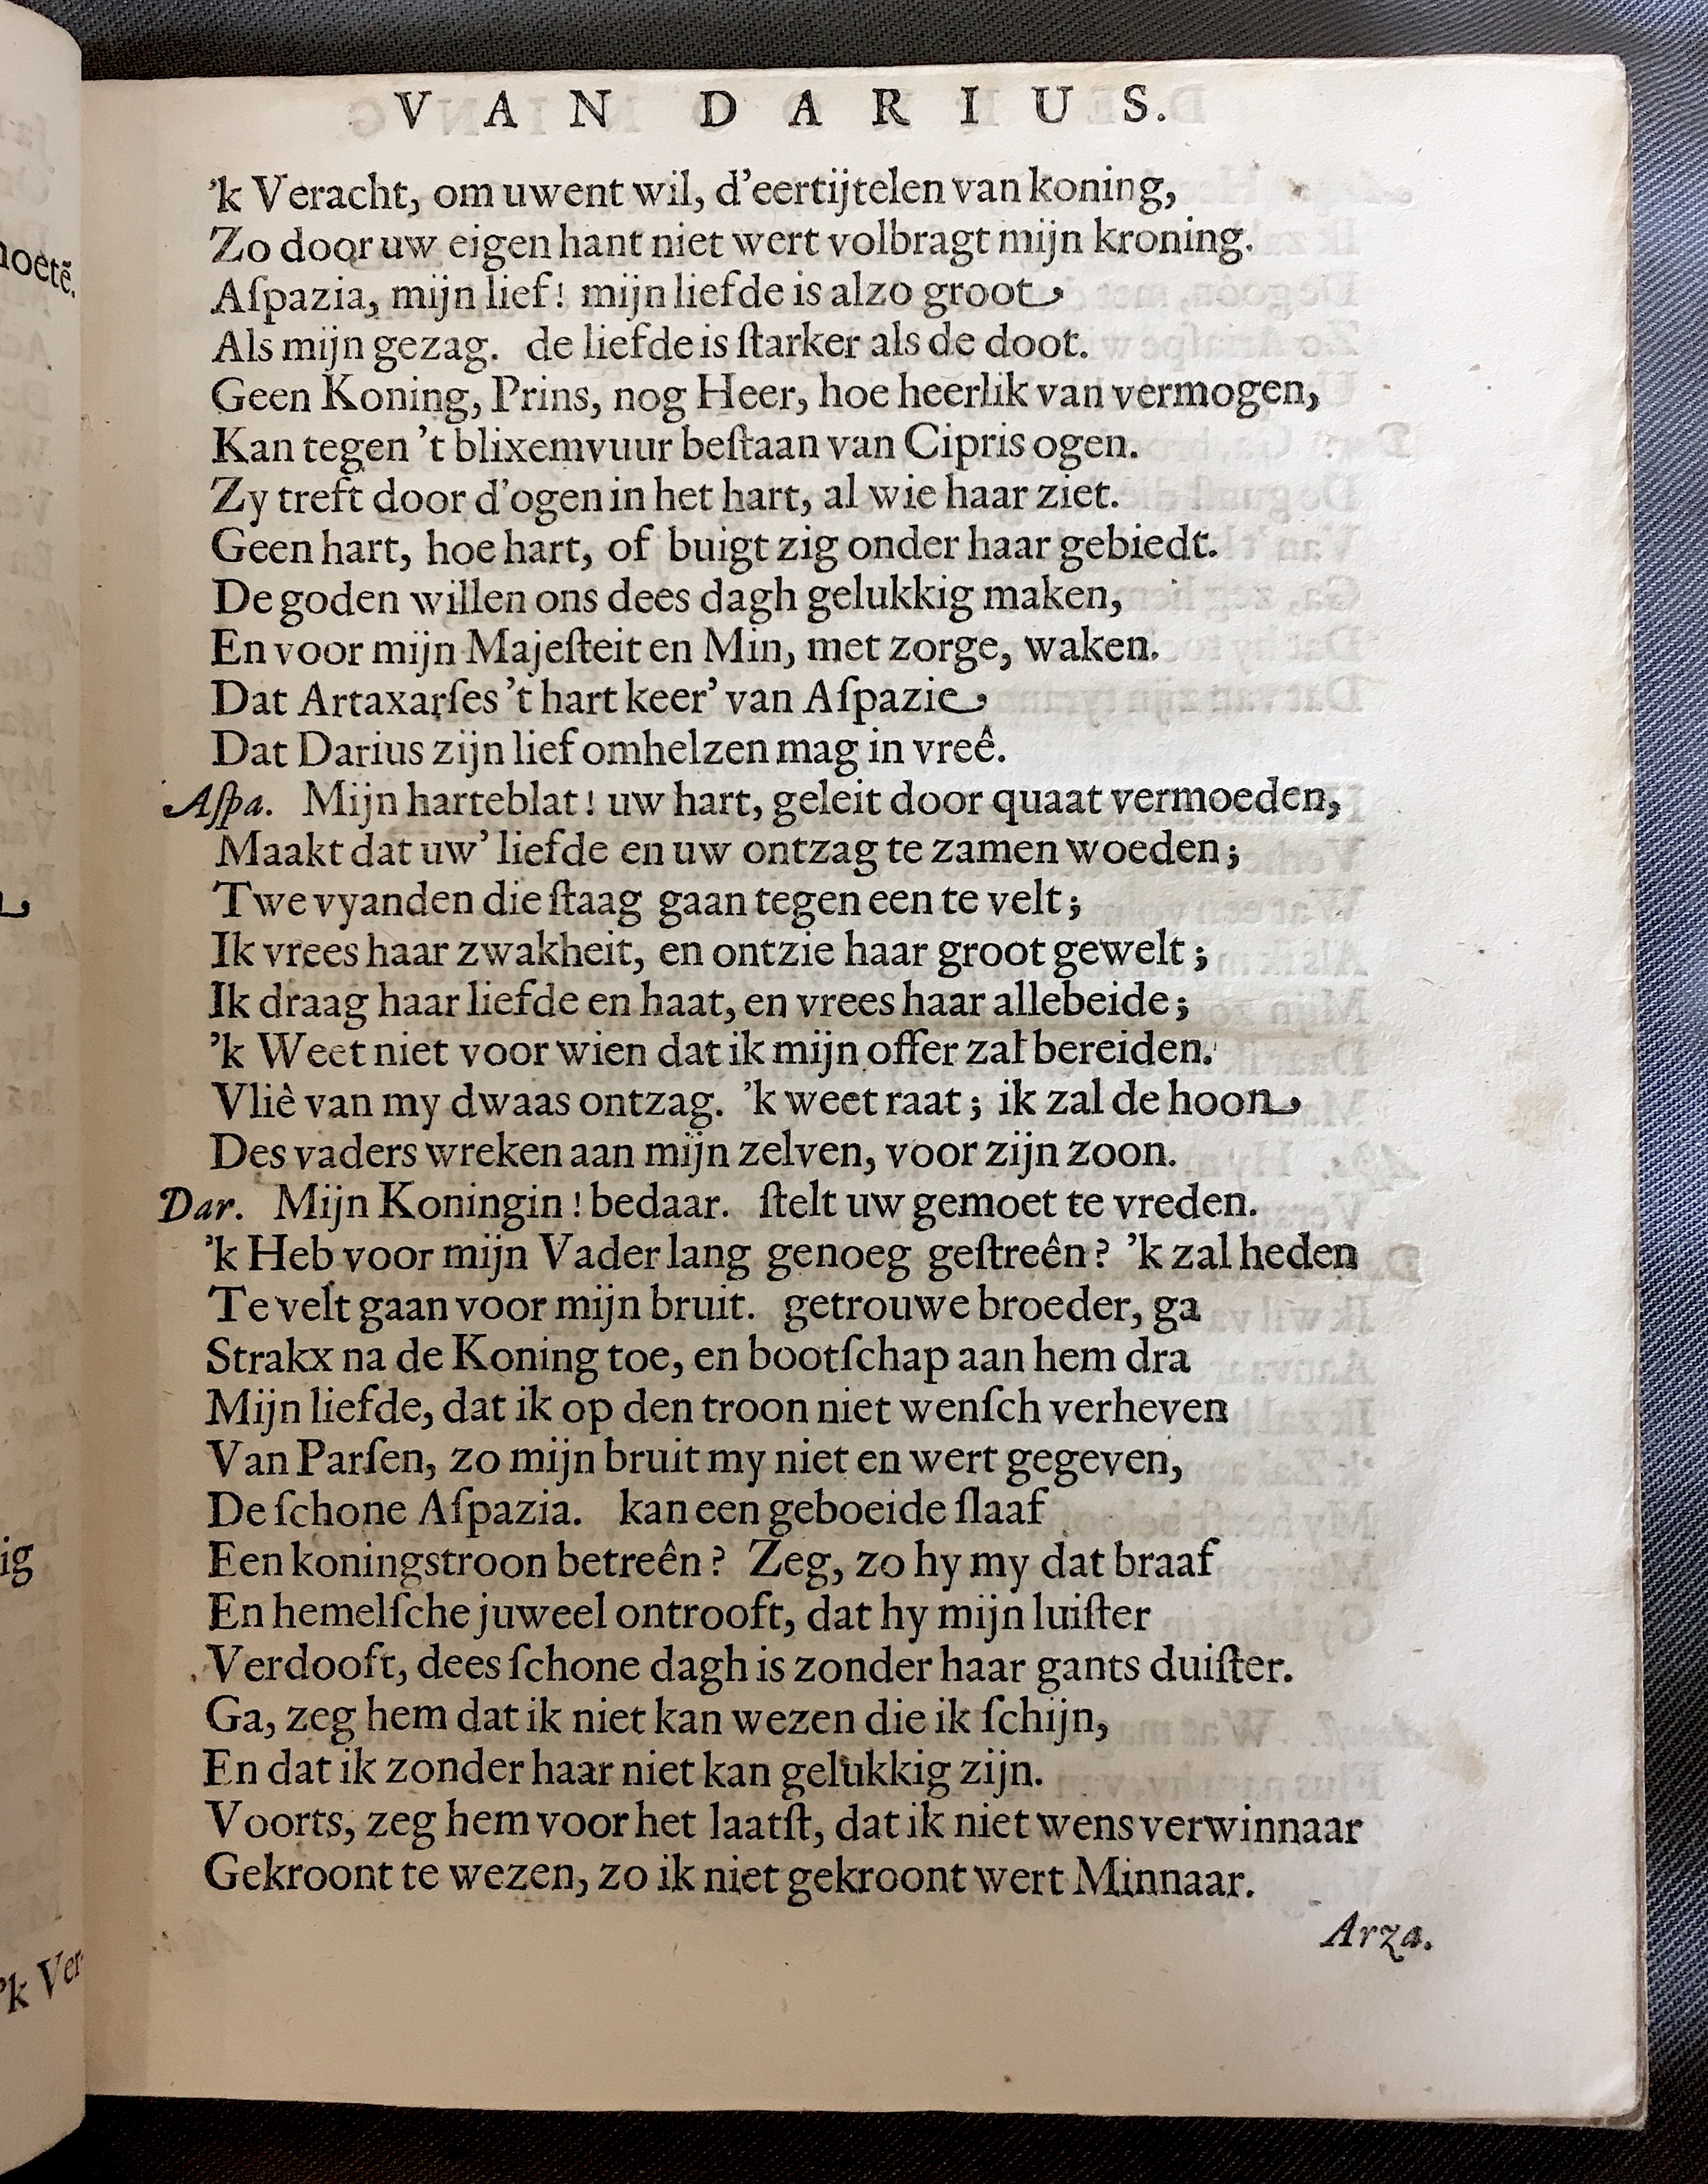 VAN DARIUS.
'k Veracht, om uwent wil, d'eertijtelen van koning,
Zo door uw eigen hant niet wert volbragt mijn kroning.
Aſpazia, mijn lief! mijn liefde is alzo groot
Als mijn gezag. de liefde is ſtarker als de doot.
Geen Koning, Prins, nog Heer, hoe heerlik van vermogen,
Kan tegen 't blixemvuur beſtaan van Cipris ogen.
Zy treft door d'ogen in het hart, al wie haar ziet.
Geen hart, hoe hart, of buigt zig onder haar gebiedt.
De goden willen ons dees dagh gelukkig maken,
En voor mijn Majeſteit en Min, met zorge, waken.
Dat Artaxarſes 't hart keer' van Aſpazie
Dat Darius zijn lief omhelzen mag in vreê.
Aſpa. Mijn harteblat! uw hart, geleit door quaat vermoeden,
Maakt dat uw' liefde en uw ontzag te zamen woeden;
Twe vyanden die ſtaag gaan tegen een te velt;
Ik vrees haar zwakheit, en ontzie haar groot gewelt;
Ik draag haar liefde en haat, en vrees haar allebeide;
'k Weet niet voor wien dat ik mijn offer zal bereiden.
Vliê van my dwaas ontzag. 'k weet raat; ik zal de hoon
Des vaders wreken aan mijn zelven, voor zijn zoon.
Dar. Mijn Koningin! bedaar. ſtelt uw gemoet te vreden.
'k Heb voor mijn Vader lang genoeg geſtreên? 'k zal heden
Te velt gaan voor mijn bruit. getrouwe broeder, ga
Strakx na de Koning toe, en bootſchap aan hem dra
Mijn liefde, dat ik op den troon niet wenſch verheven
Van Parſen, zo mijn bruit my niet en wert gegeven,
De ſchone Aſpazia. kan een geboeide ſlaaf
Een koningstroon betreên? Zeg, zo hy my dat braaf
En hemelſche juweel ontrooft, dat hy mijn luiſter
Verdooft, dees ſchone dagh is zonder haar gants duiſter.
Ga, zeg hem dat ik niet kan wezen die ik ſchijn,
En dat ik zonder haar niet kan gelukkig zijn.
Voorts, zeg hem voor het laatſt, dat ik niet wens verwinnaar
Gekroont te wezen, zo ik niet gekroont wert Minnaar.
Arza.